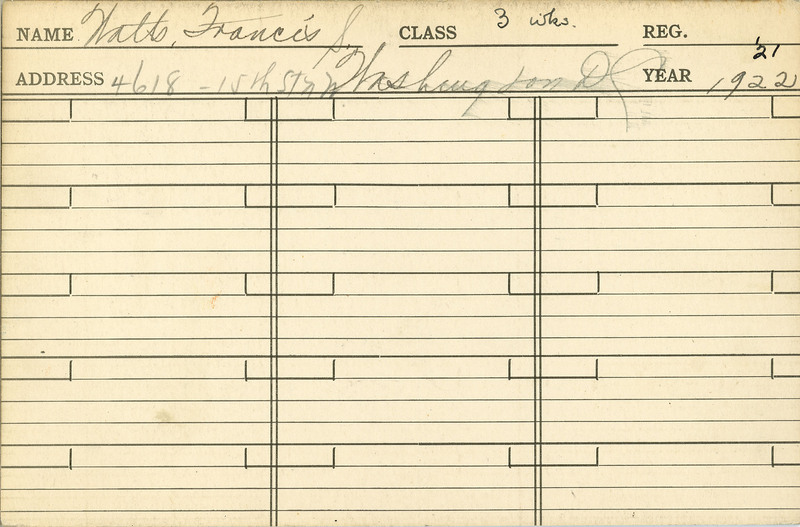 NAME Watts, Francis S. CLASS 3 wks. REG. '21
ADDRESS 4618 - 15th St N W Washington D C YEAR 1922